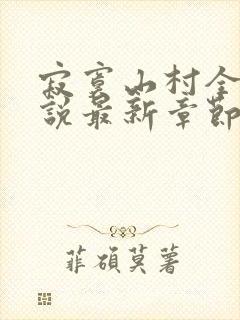 寂寞山村全
說最新章節
菲碩莫著